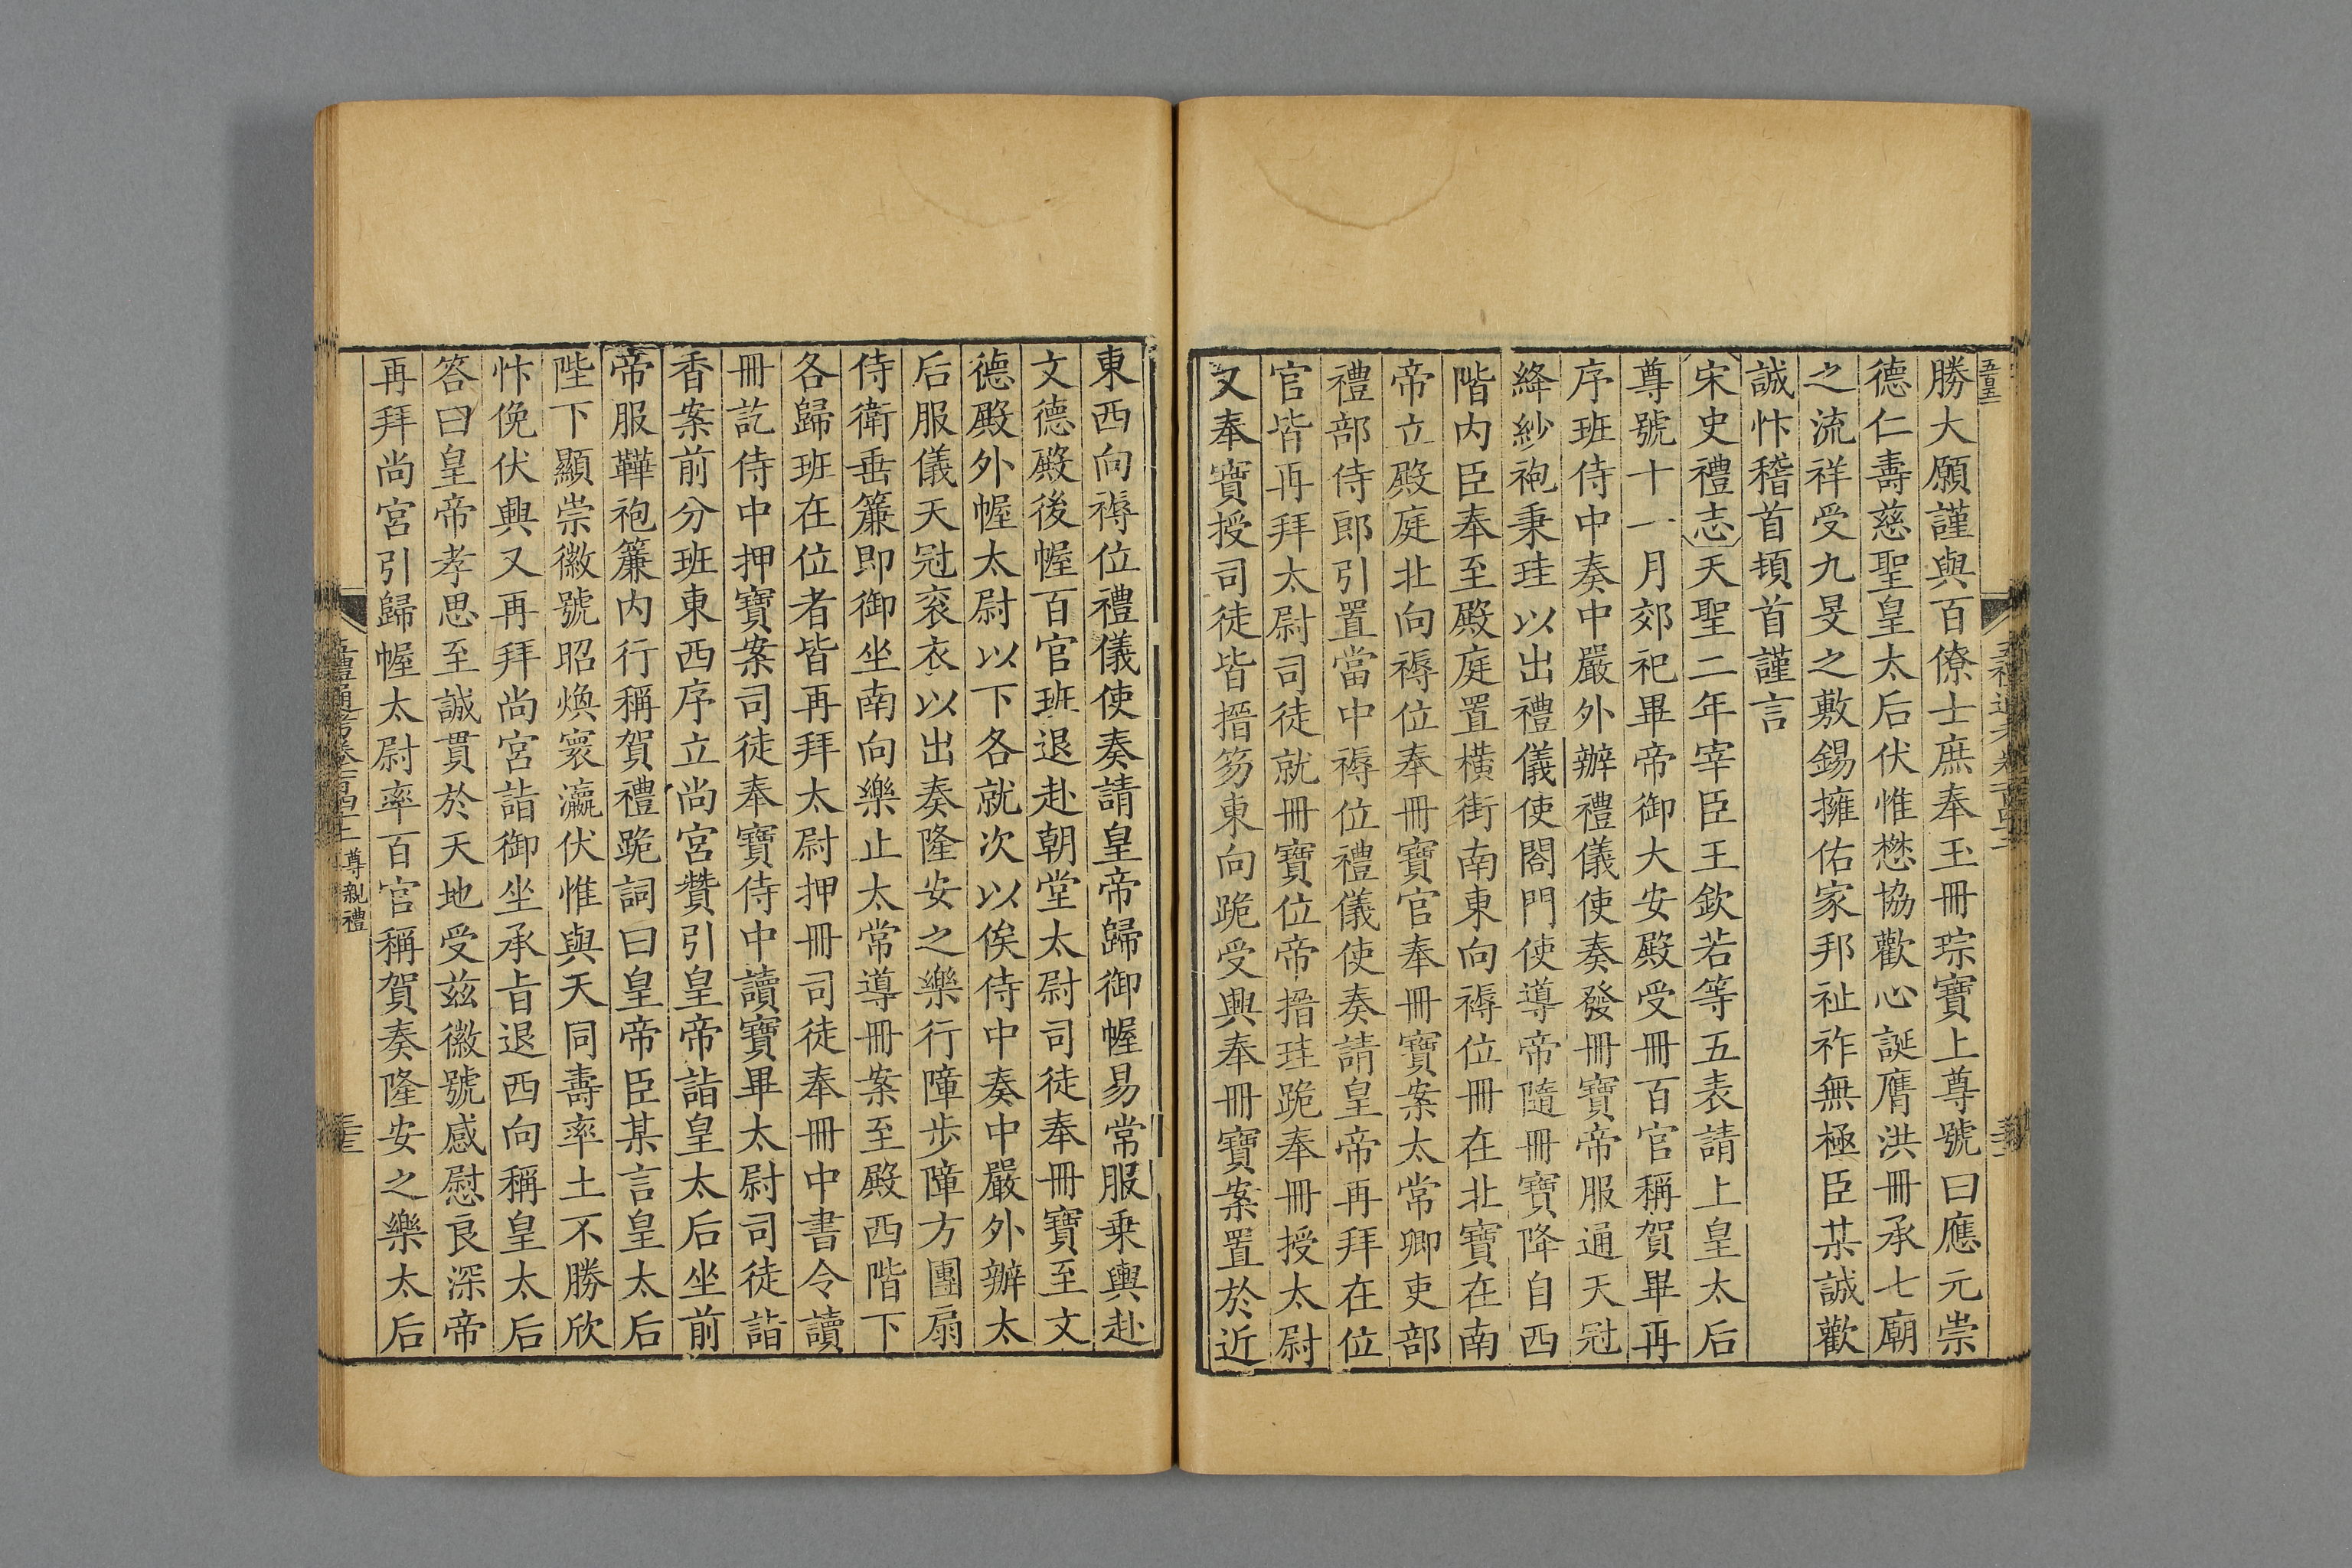 勝大願謹與百僚士庶奉玉冊琮寶上尊號曰應元崇
德仁壽慈聖皇太后伏惟懋協歡心誕膺洪冊承七廟
之流祥受九旻之敷錫擁佑家邦祉祚無極臣某誠歡
誠忭稽首頓首謹言
宋史禮志天聖二年宰臣王欽若等五表請上皇太后
尊號十一月郊祀畢帝御大安殿受冊百官稱賀畢再
序班侍中奏中嚴外辦禮儀使奏發冊寶帝服通天冠
絳紗袍秉珪以出禮儀使閤門使導帝隨冊寶降自西
階內臣奉至殿庭置橫街南東向褥位冊在北寶在南
帝立殿庭北向褥位奉冊寶官奉冊寶案太常卿吏部
禮部侍郎引置當中褥位禮儀使奏請皇帝再拜在位
官皆再拜太尉司徒就冊寶位帝搢珪跪奉冊授太尉
又奉寶授司徒皆搢笏東向跪受興奉冊寶案置於近
東西向褥位禮儀使奏請皇帝歸御幄易常服乗輿赴
文德殿後幄百官班退赴朝堂太尉司徒奉冊寶至文
德殿外幄太尉以下各就次以俟侍中奏中嚴外辦太
后服儀天冠袞衣以出奏隆安之樂行障步障方團扇
侍衛垂簾即御坐南向樂止太常導冊案至殿西階下
各歸班在位者皆再拜太尉押冊司徒奉冊中書令讀
冊訖侍中押寶案司徒奉寶侍中讀寶畢太尉司徒詣
香案前分班東西序立尚宮贊引皇帝詣皇太后坐前
帝服鞾袍簾內行稱賀禮跪詞曰皇帝臣某言皇太后
陛下顯崇徽號昭煥寰瀛伏惟與天同壽率土不勝欣
忭俛伏興又再拜尚宮詣御坐承旨退西向稱皇太后
答曰皇帝孝思至誠貫於天地受茲徽號感慰良深帝
再拜尚宮引歸幄太尉率百官稱賀奏隆安之樂太后
尊親禮